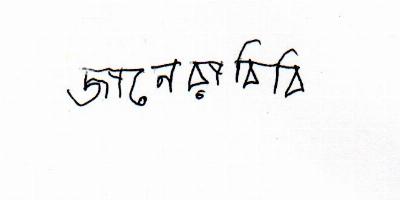 জানেরা বিবি